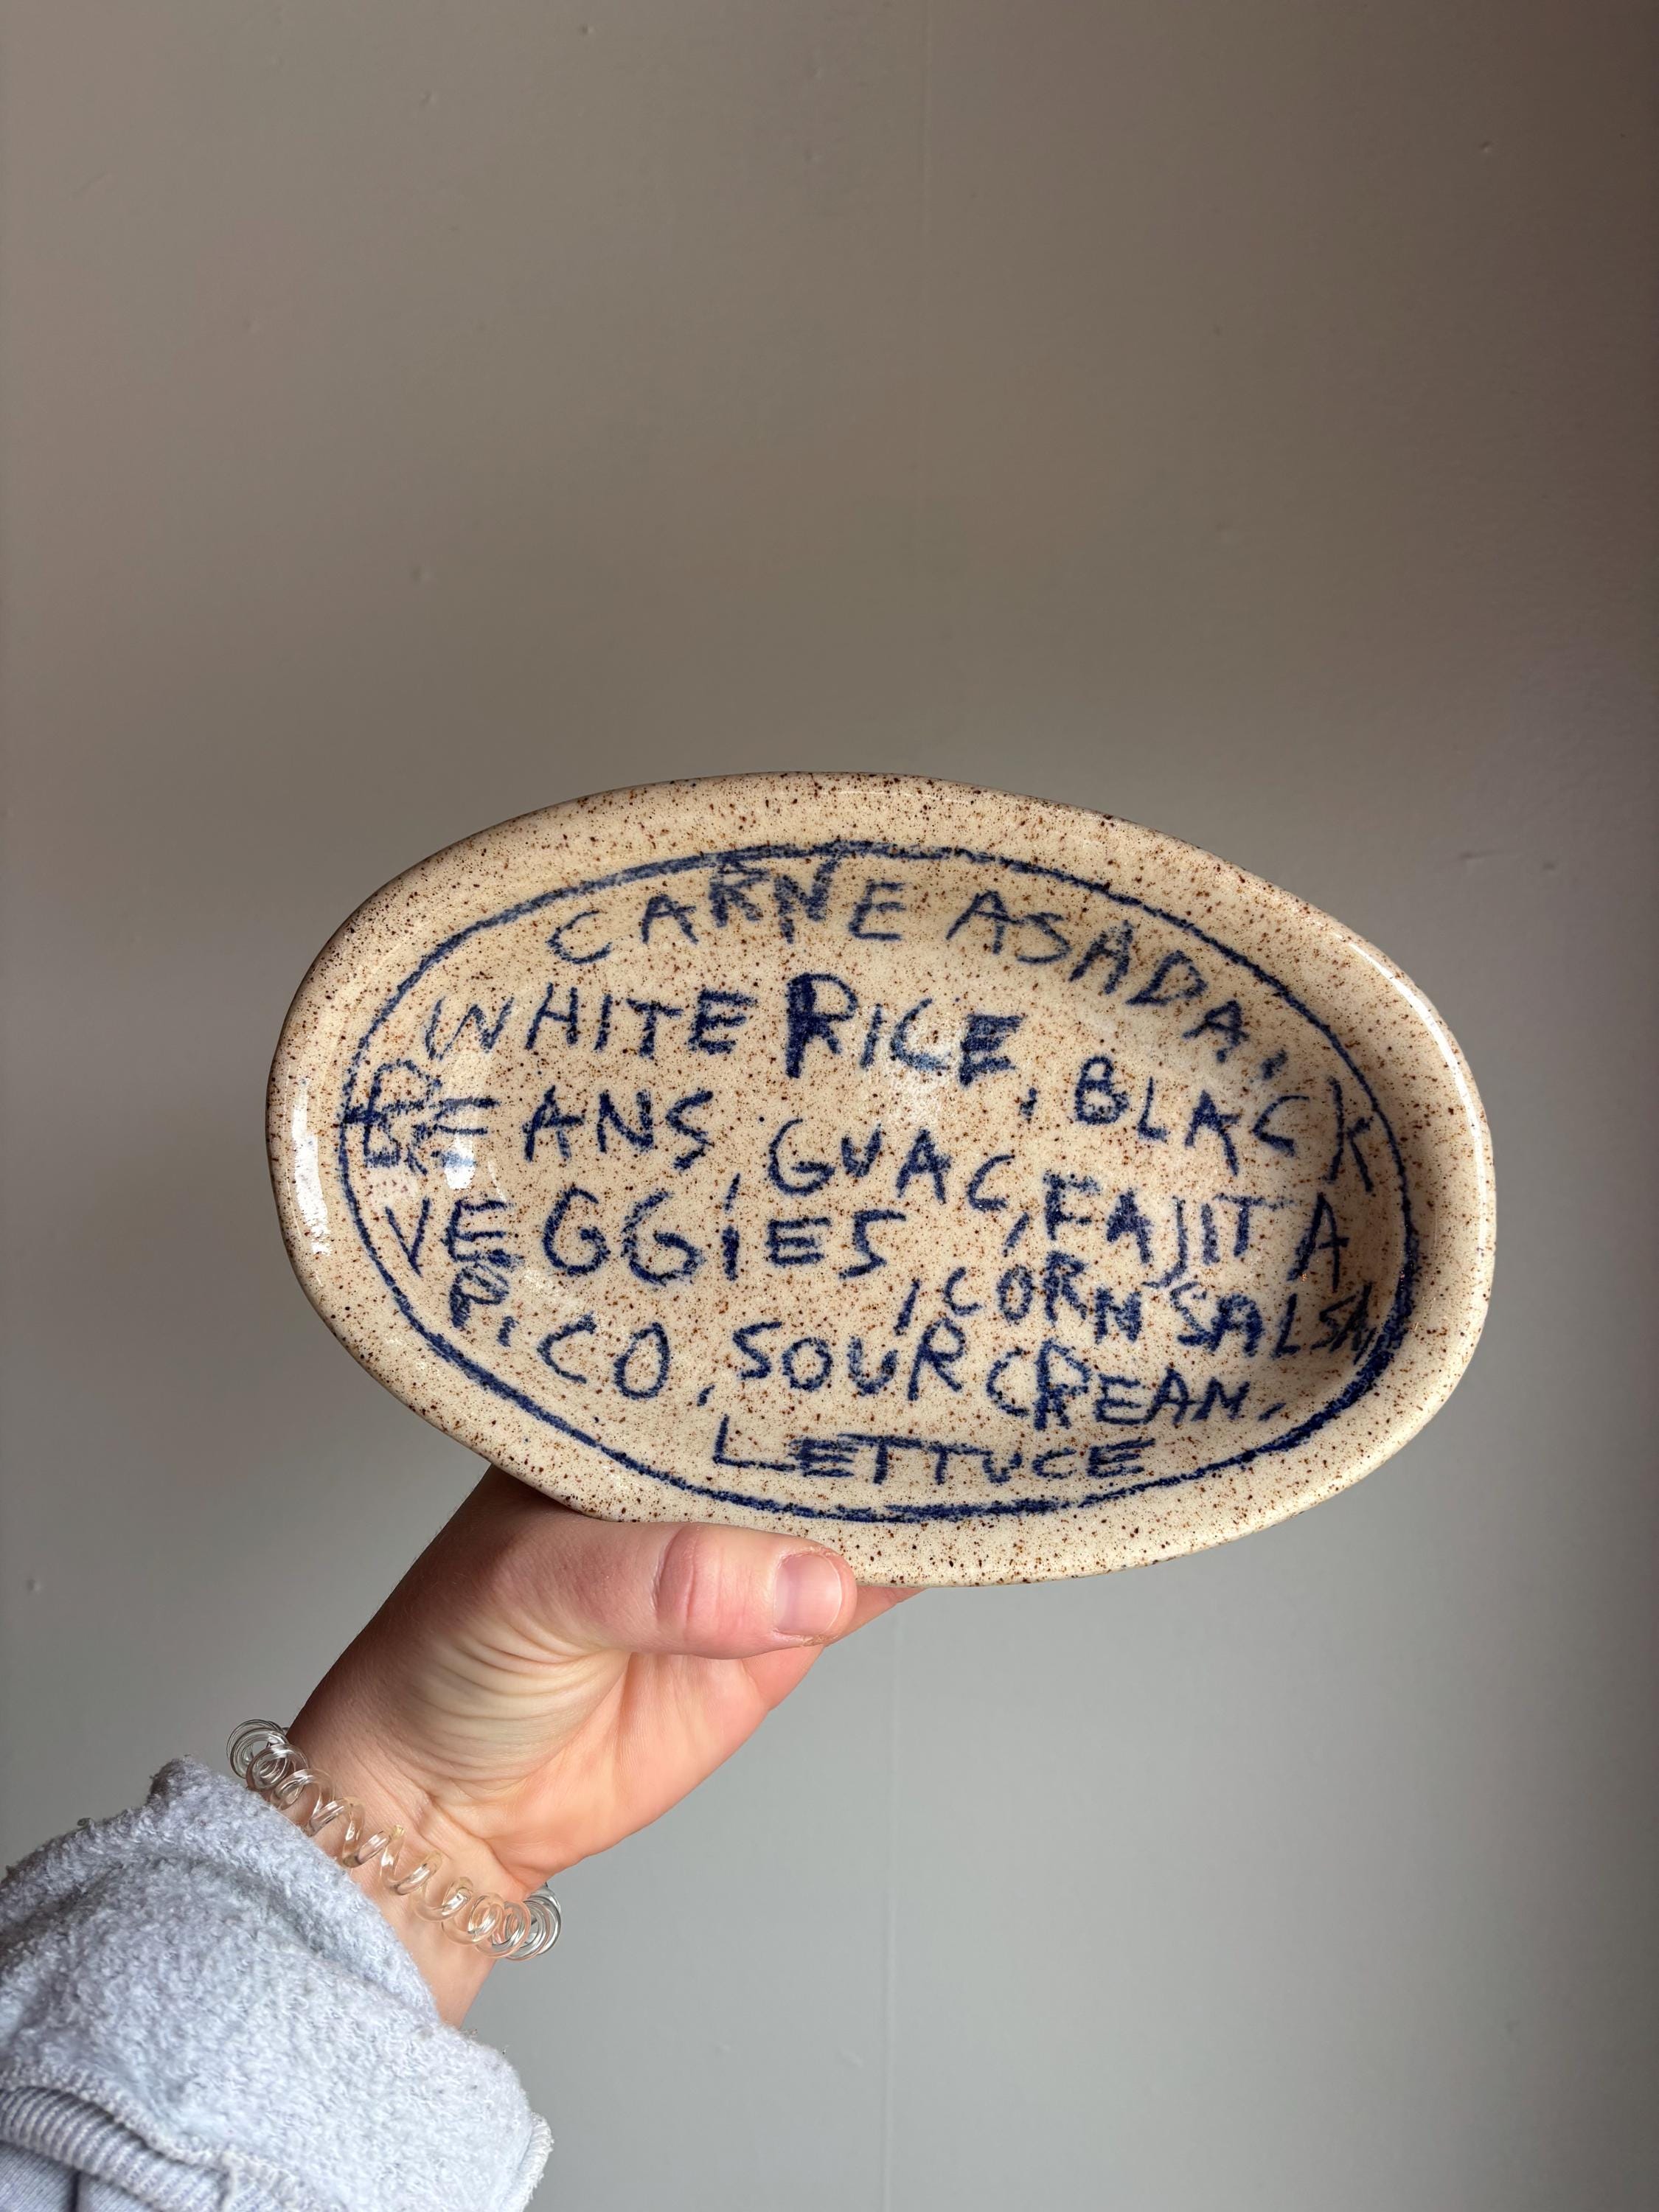 CARNE ASADA,
WHITE RICE, BLACK
BEANS, GUAC, FAJITA
VEGGIES, CORN SALSA,
PICO, SOUR CREAM,
LETTUCE